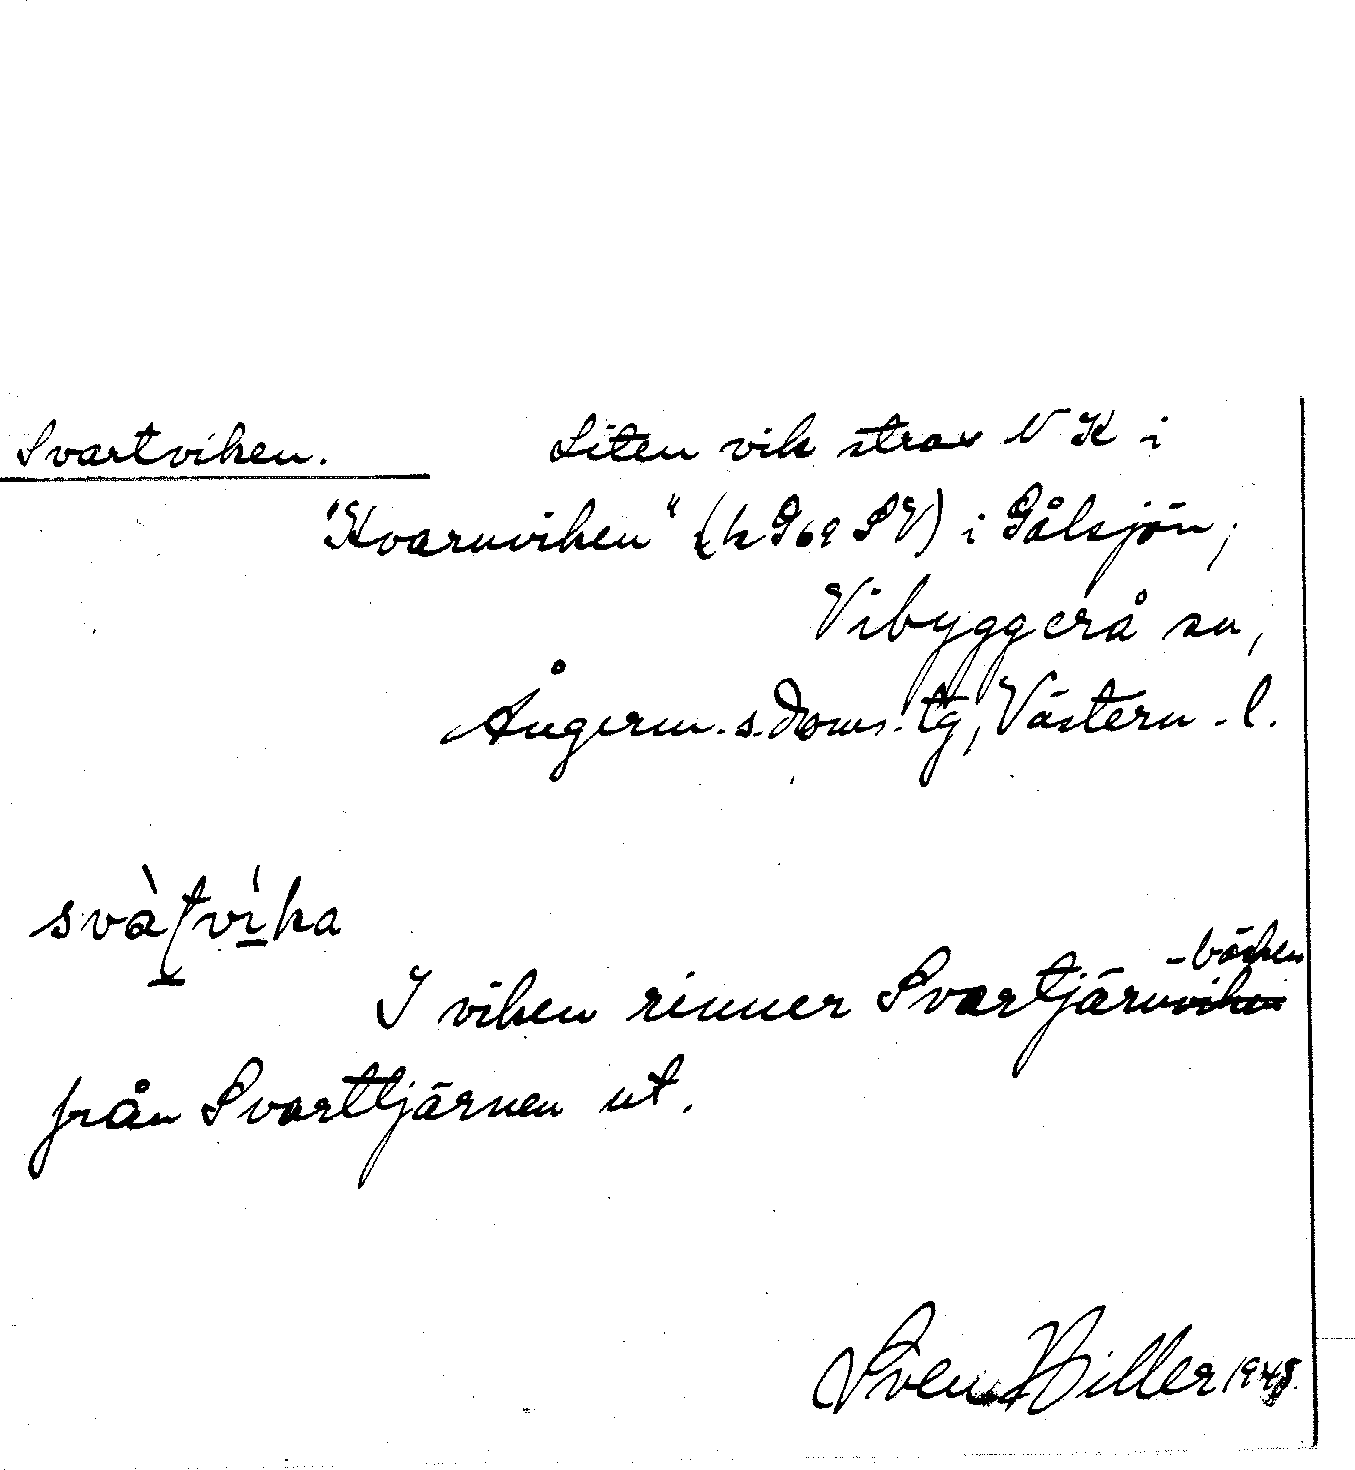 Svartviken. Liten vik strax N K i
"Kvarnviken" (k G69 SV) i Gålsjön,
Vibyggerå sn,
Ångerm. s. doms. tg, Västern. l.
svàtvíka
-bäcken
I viken rinner Svartjärnviken
från Svarttjärnen ut.
Sven Hiller 1948.